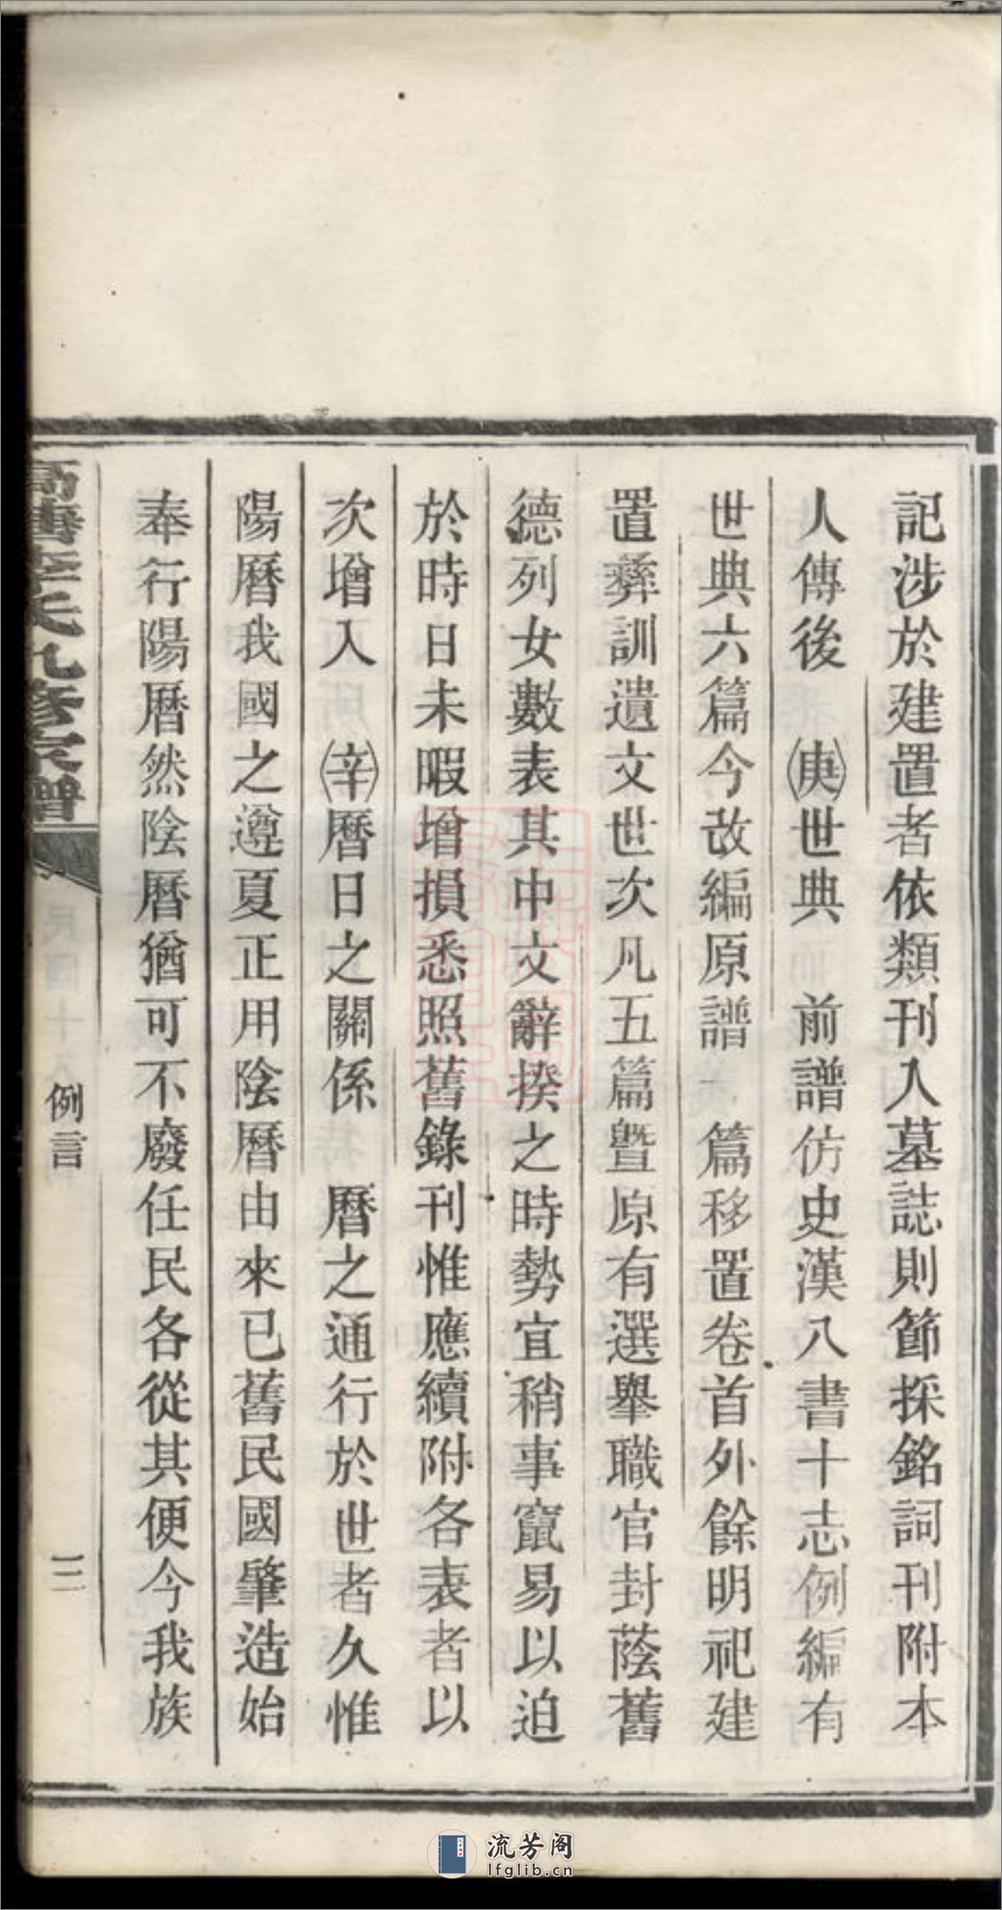 記涉於建置者依類刊入墓誌則節採銘詞刊附本
人傳後　㊎世典　前譜仿史漢八書十志例編有
世典六篇今改編原譜　篇移置卷首外餘明祀建
置彝訓遺文世次凡五篇暨原有選舉職官封蔭舊
德列女數表其中文辭揆之時勢宜稍事竄易以迫
於時日未暇增損悉照舊錄刊惟應續附各表者以
次增入　(辛)曆日之關係　曆之通行於世者久惟
陽曆我國之遵夏正用陰曆由來已舊民國肇造始
奉行陽曆然陰曆猶可不廢任民各從其便今我族
氏九修宗譜
例言
三
流芳阁
lfglib.cn